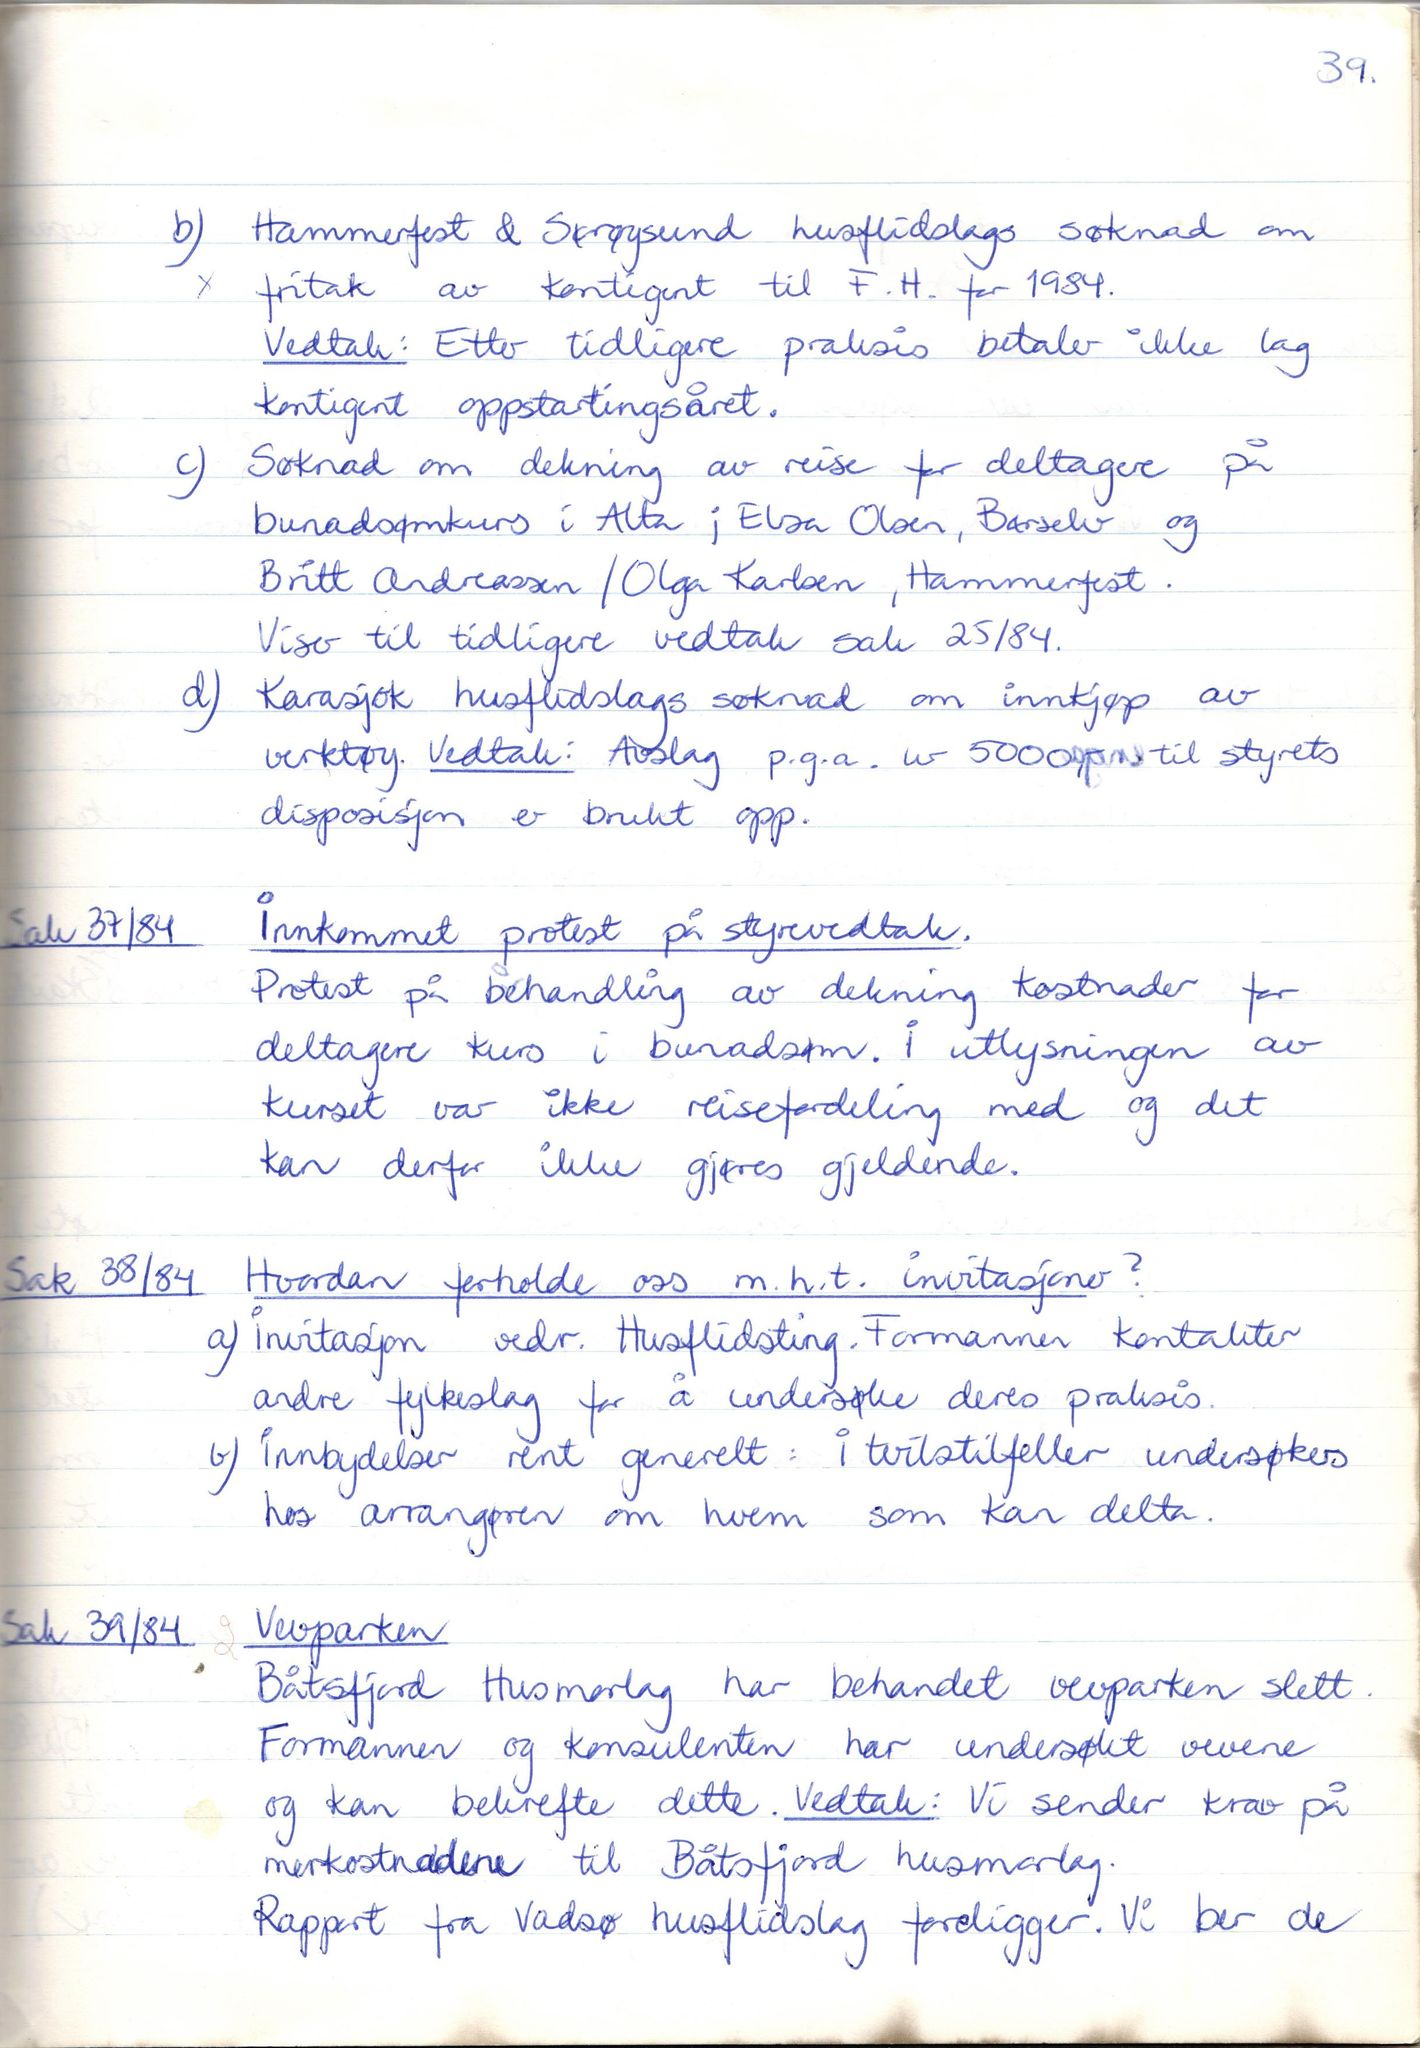 39.
b) Hammerfest & Sørøysund husflidslags søknad om
x fritak av kontigent til F.H. for 1984.
Vedtak: Etter tidligere praksis betaler ikke lag
kontigent oppstartingsåret.
c) Søknad om dekning av reise for deltagere på
bunadsømkurs i Alta ; Elsa Olsen, Børselv og
Britt Andreassen / Olga Karlsen, Hammerfest.
Viser til tidligere vedtak sak 25/84.
d) Karasjok husflidslags søknad om innkjøp av
verktøy. Vedtak: Avslag p.g.a. kr 5000 til styrets
disposisjon er brukt opp.
Sak 37/84 Innkommet protest på styrevedtak.
Protest på behandling av dekning kostnader for
deltagere kurs i bunadsøm. I utlysningen av
kurset var ikke reisefordeling med og det
kan derfor ikke gjøres gjeldende.
Sak 38/84 Hvordan forholde oss m.h.t. invitasjoner?
a) Invitasjon vedr. Husflidsting. Formannen kontakter
andre fylkeslag for å undersøke deres praksis.
b) Innbydelser rent generelt : I tvilstilfeller undersøkes
hos arrangøren om hvem som kan delta.
Sak 39/84 Vevparken
Båtsfjord Husmorlag har behandet vevparken slett.
Formannen og konsulenten har undersøkt vevene
og kan bekrefte dette. Vedtak: Vi sender krav på
merkostnadene til Båtsfjord husmorlag.
Rapport fra Vadsø husflidslag foreligger. Vi ber de